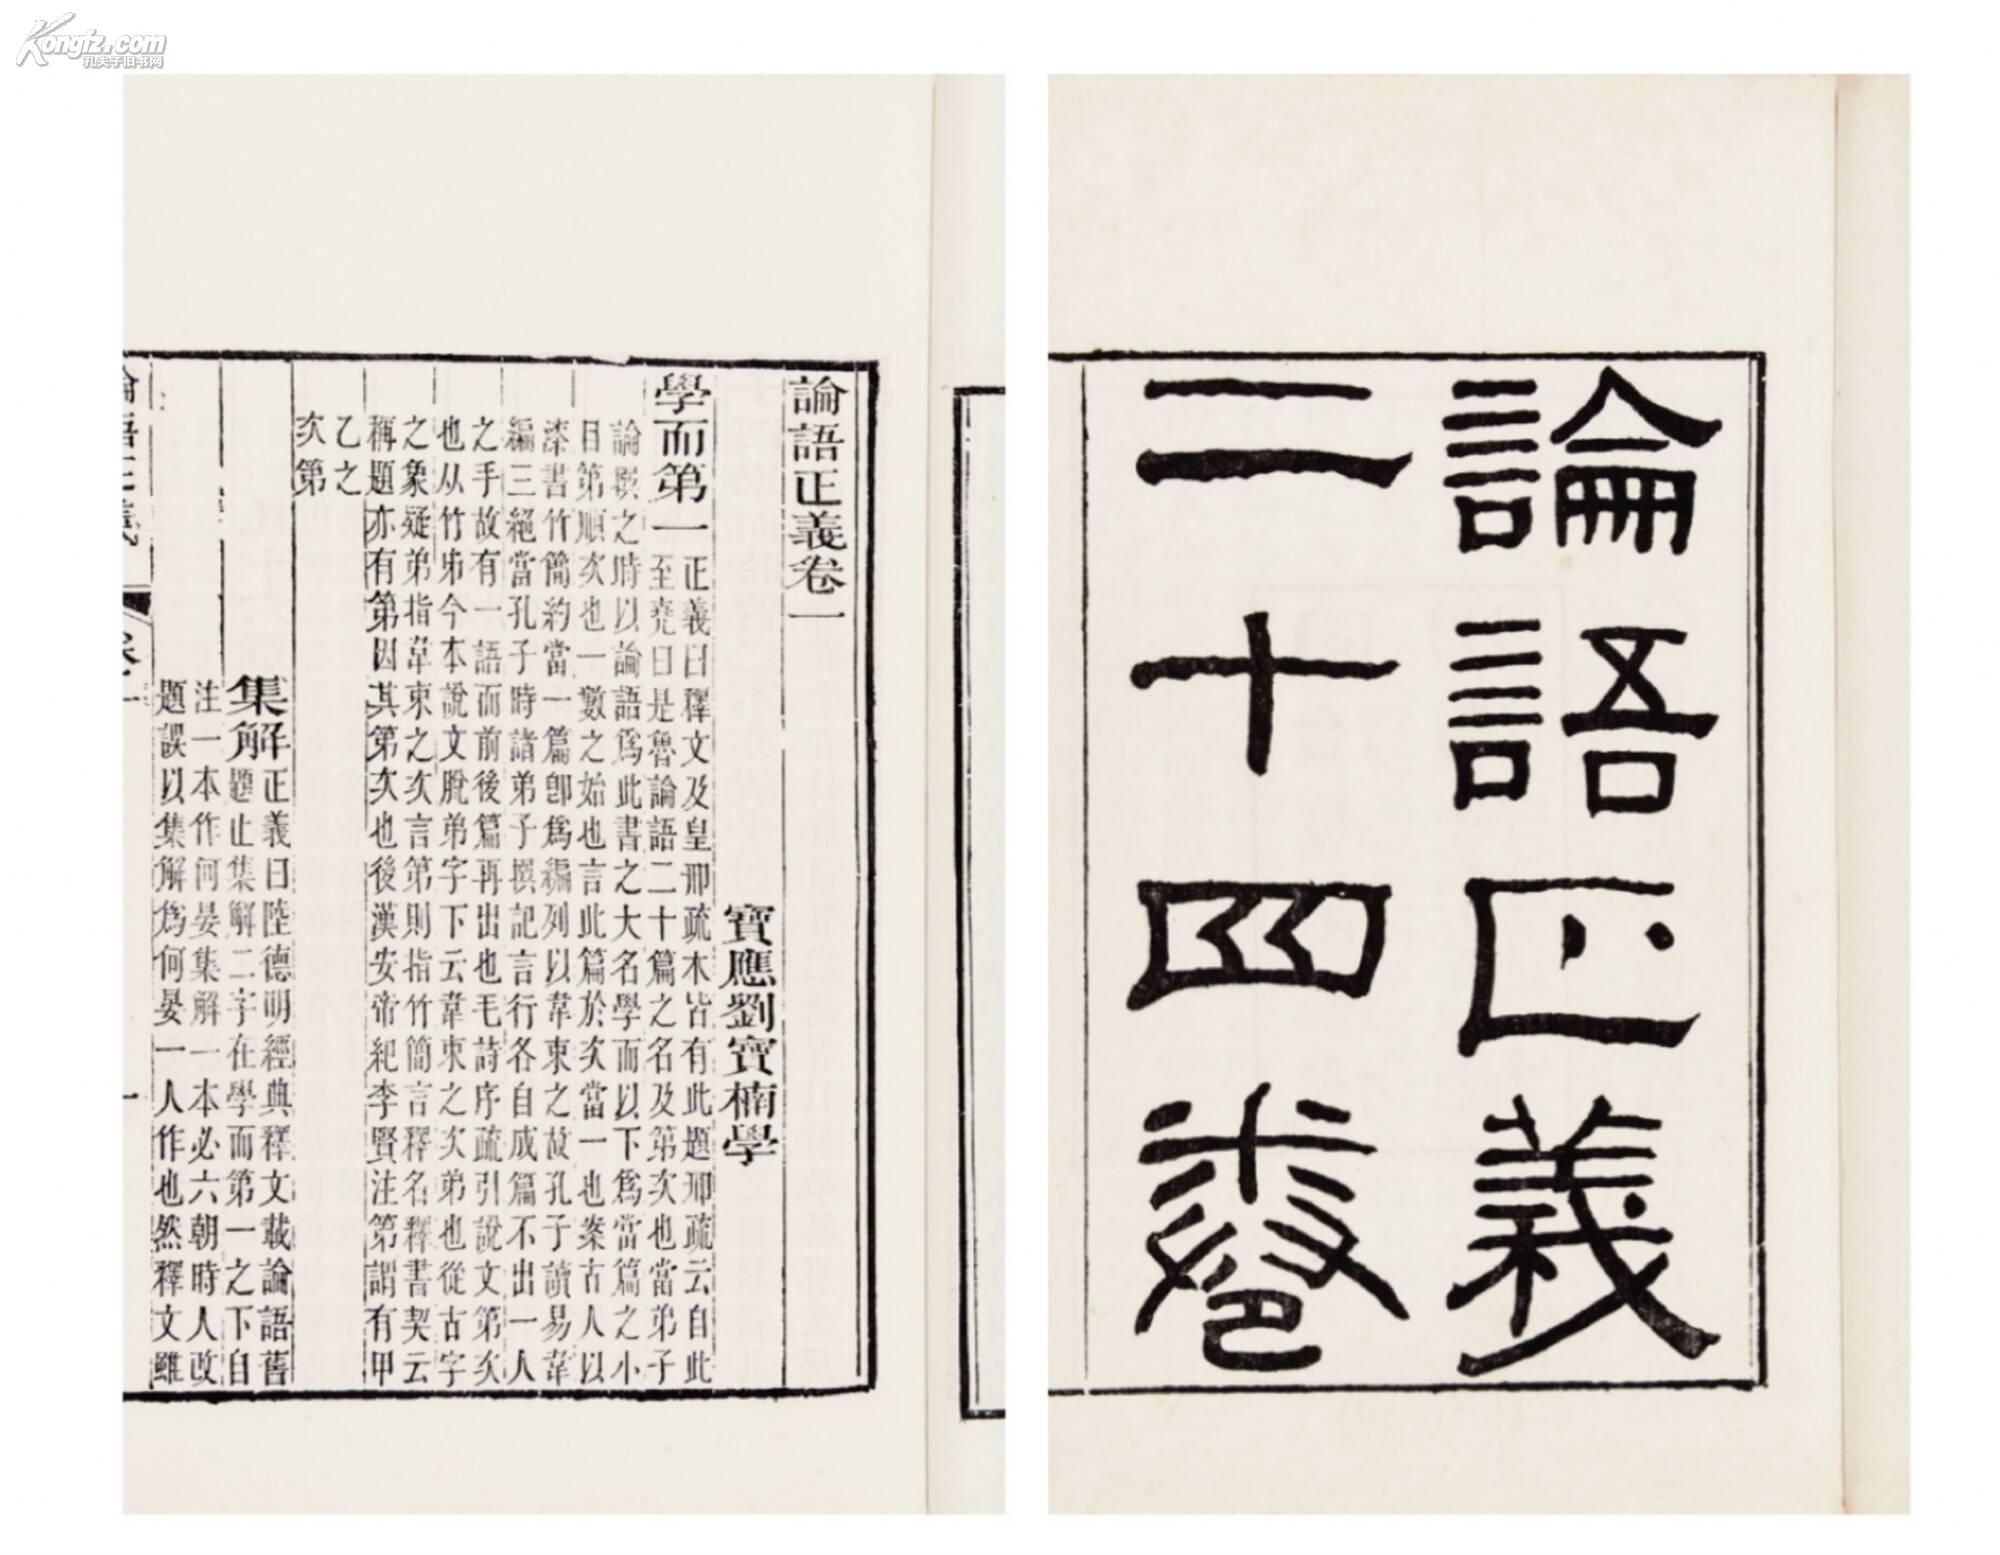 Kongfz.com
孔夫子旧书网
論語正義
二十四卷
論語正義卷一
寶應劉寶楠學
學而第一
正義曰釋文及皇邢疏本皆有此題邢疏云自此
至堯曰是魯論語二十篇之名及第次也當弟子
論撰之時以論語爲此書之大名學而以下爲當篇之小
目第順次也一數之始也言此篇於次當一也案古人以
漆書竹簡約當一篇卽爲編列以韋束之故孔子讀易韋
編三絕當孔子時諸弟子撰記言行各自成篇不出一人
之手故有一語而前後篇再出也毛詩序疏引說文第次
也从竹弟今本說文脫弟字下云韋束之次弟也從古字
之象疑弟指韋束之次言第則指竹簡言釋名釋書契云
稱題亦有第因其第次也後漢安帝紀李賢注第謂有甲
乙之
次第
集解
正義曰陸德明經典釋文載論語舊
題止集解二字在學而第一之下自
注一本作何晏集解一本必六朝時人改
題誤以集解爲何晏一人作也然釋文雖
論語正義
卷一
一